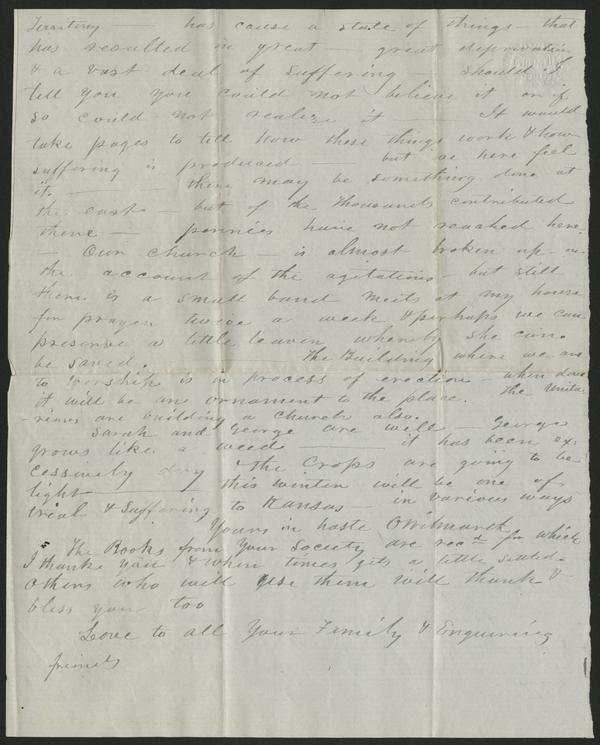 Territory — has cause a state of things that
has resulted in great — great deprivation
& a vast deal of suffering — should I
tell you you could not believe it or if
so could not realize it — It would
take pages to tell how these things work & how
suffering is produced — but we here feel
it. — there may be something done at
the east — but of the thousands contributed
there — pennies have not reached here.
— Our church — is almost broken up on
the account of the agitations — but still
there is a small band meets at my house
for prayer twice a week & perhaps we can
preserve a little leaven whereby she can
be saved. The Building where we are
to worship is in process of erection — when done
it will be an ornament to the place. The Unita-
-rians are building a church also.
Sarah and George are well — George
grows like a weed — it has been ex-
cessively dry & the Crops are going to be
light — this winter will be one of
trial & suffering to Kansas — in various ways
Yours in haste O Wilmarth
The Books from Your Society are recd for which
I thank you & when times gets a little settled
others who will use them will thank &
bless you too
Love to all Your Family & Enquiring
friends